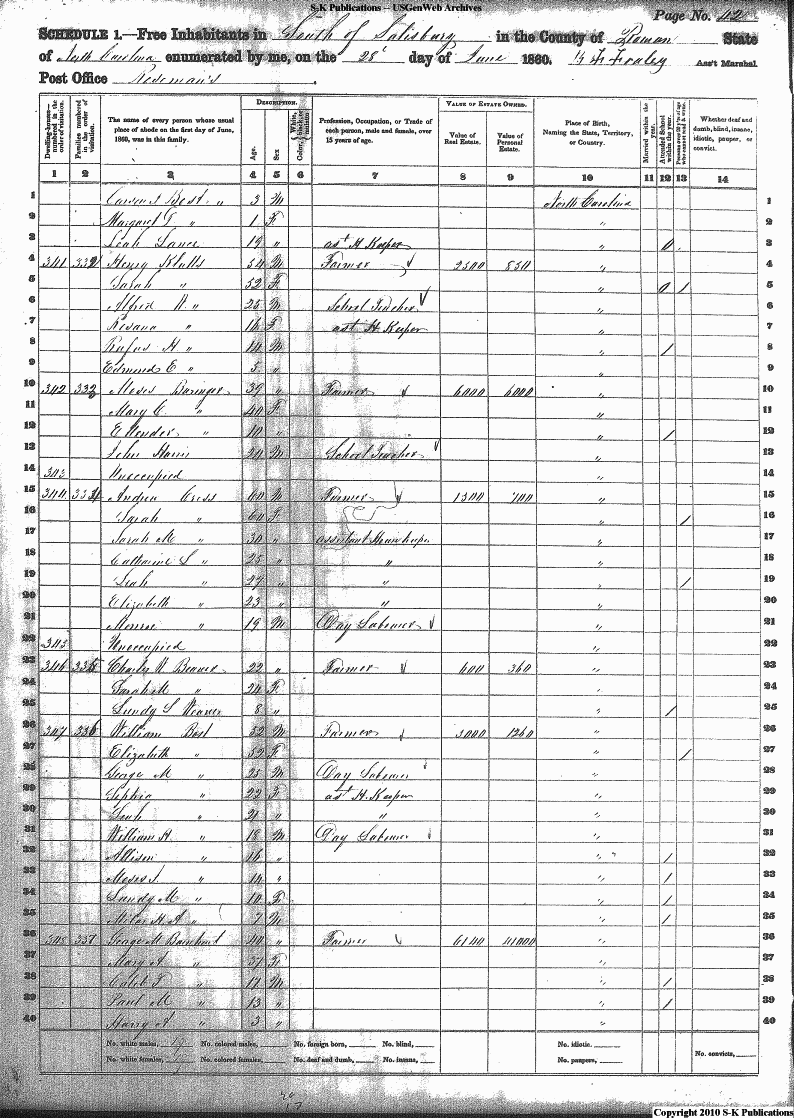 S-K Publications -- USGenWeb Archives
Page No. 42
SCHEDULE 1.—Free Inhabitants in South of Salisbury in the County of Rowan State
of North Carolina enumerated by me, on the 28 day of June 1860. Fraley Ass't Marshal
Post Office
Dwelling-houses—numbered in the order of visitation.
Families numbered in the order of visitation.
The name of every person whose usual place of abode on the first day of June, 1860, was in this family.
DESCRIPTION.
Age.
Sex
Color, White, black, or mulatto
Profession, Occupation, or Trade of each person, male and female, over 15 years of age.
VALUE OF ESTATE OWNED.
Value of Real Estate.
Value of Personal Estate.
Place of Birth, Naming the State, Territory, or Country.
Married within the year.
Attended School within the year.
Persons over 20 y'rs of age who cannot read & write.
Whether deaf and dumb, blind, insane, idiotic, pauper, or convict.
1 2 3 4 5 6 7 8 9 10 11 12 13 14
1 Bost 3 M North Carolina 1
2 Margaret 1 F " 2
3 Leah 19 " ast H Keeper " 3
4 341 332 Henry Klutts 54 M Farmer 2500 850 " 4
5 Sarah " 52 F " 1 5
6 Alfred W. " 25 M School Teacher " 6
7 Rosana " 16 F ast H Keeper " 7
8 Rufus H " 14 M " / 8
9 Edmund E " 5 " " 9
10 342 333 Moses Baringer 39 " Farmer 6000 6000 " 10
11 Mary C. " 40 F " 11
12 " 10 " " / 12
13 John 24 M School Teacher " 13
14 343 Unoccupied " 14
15 344 334 Andrew Cress 60 M Farmer 1300 700 " 15
16 Sarah " 60 F " / 16
17 Sarah M " 30 " assistant Housekeeper " 17
18 Catharine L " 25 " " " 18
19 Leah " 27 " " " / 19
20 Elizabeth " 23 " " " 20
21 Monroe " 19 M Day Labourer " 21
22 345 Unoccupied " 22
23 346 335 Charles W Beaver 22 " Farmer 600 360 " 23
24 Sarah M " 24 F " 24
25 Lundy S Weaver 8 " " / 25
26 347 336 William Bost 52 M Farmer 3000 1260 " 26
27 Elizabeth " 52 F " / 27
28 George M " 25 M Day Labourer " 28
29 Sophia " 22 F ast H. Keeper " 29
30 Leah " 21 " " " 30
31 William H. " 18 M Day Labourer " 31
32 Allison " 16 " " / 32
33 Moses J. " 14 " " / 33
34 Lundy M " 10 F " / 34
35 " 7 M " / 35
36 348 337 George M Barnhart 40 " Farmer 6140 41000 " 36
37 Mary A " 37 F " 37
38 Caleb T " 17 M " / 38
39 Paul M " 13 " " / 39
40 Harry A " 3 " " 40
No. white males, No. colored males, No. foreign born, No. blind, No. idiotic. No. convicts,
No. white females, No. colored females, No. deaf and dumb, No. insane, No. paupers,
Copyright 2010 S-K Publications